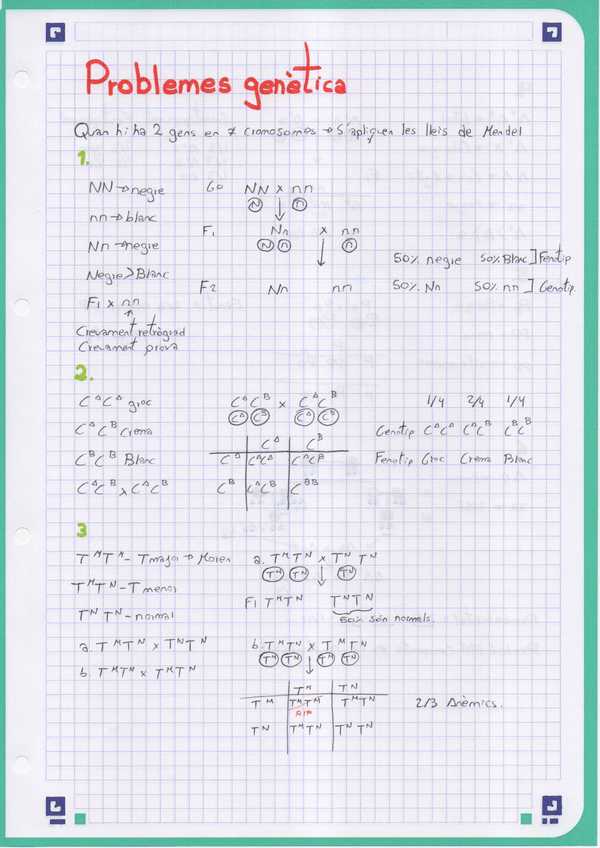 Problemes genètica
Quan hi ha 2 gens en ≠ cromosomes → S'apliquen les lleis de Mendel
1.
NN → negre
nn → blanc
Nn → negre
Negre > Blanc
F1 x nn
Creuament retrògrad
Creuament prova
G0 NN x nn
N n
F1 Nn x nn
N n n
F2 Nn nn
50% negre 50% Blanc ] Fenotip
50% Nn 50% nn ] Genotip.
2.
C^A C^A groc
C^A C^B Crema
C^B C^B Blanc
C^A C^B x C^A C^B
C^A C^B x C^A C^B
C^A C^B C^A C^B
C^A C^B
C^A C^A C^A C^A C^B
C^B C^A C^B C^BB
1/4 2/4 1/4
Genotip C^A C^A C^A C^B C^B C^B
Fenotip Groc Crema Blanc
3
T^M T^M - T major → Moren
T^M T^N - T menor
T^N T^N - normal
a. T^M T^N x T^N T^N
b. T^M T^N x T^M T^N
a. T^M T^N x T^N T^N
T^M T^N T^N
F1 T^M T^N T^N T^N
50% són normals.
b. T^M T^N x T^M T^N
T^M T^N T^M T^N
T^M T^N
T^M T^M T^M T^M T^N
RIP
T^N T^M T^N T^N T^N
2/3 Anèmics.